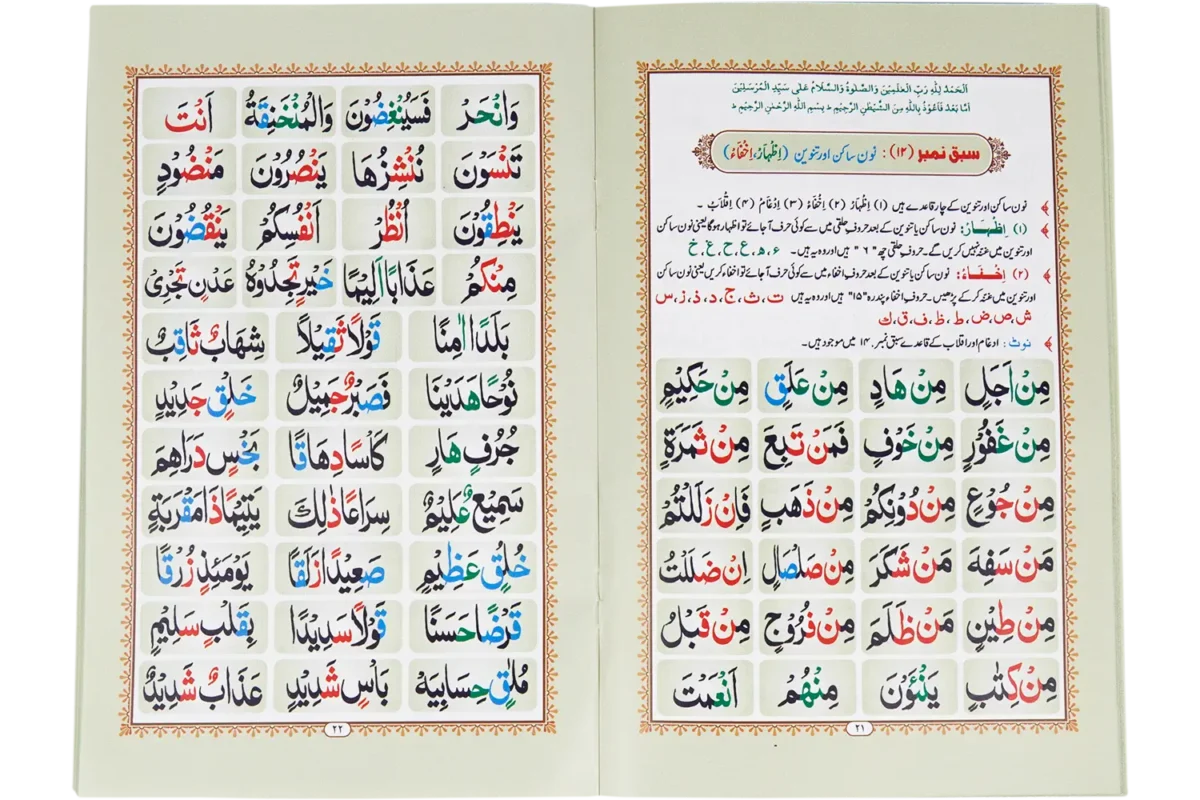 اَلْحَمْدُ لِلّٰهِ رَبِّ الْعٰلَمِيْنَ وَالصَّلٰوةُ وَالسَّلَامُ عَلٰى سَيِّدِ الْمُرْسَلِيْنَ
اَمَّا بَعْدُ فَاَعُوْذُ بِاللّٰهِ مِنَ الشَّيْطٰنِ الرَّجِيْمِ ط بِسْمِ اللّٰهِ الرَّحْمٰنِ الرَّحِيْمِ ط
سبق نمبر (۱۲) : نون ساکن اور تنوین (اِظْهَارْ، اِخْفَاءْ)
نون ساکن اور تنوین کے چار قاعدے ہیں (۱) اِظْهَارْ (۲) اِخْفَاءْ (۳) اِدْغَامْ (۴) اِقْلَابْ ۔
(۱) اِظْهَـارْ: نون ساکن یا تنوین کے بعد حروف حلقی میں سے کوئی حرف آ جائے تو اظہار ہو گا یعنی نون ساکن
اور تنوین میں غنّہ نہیں کریں گے۔ حروف حلقی چھ "۶" ہیں اور وہ یہ ہیں ۔ ء، ھ، ع، ح، غ، خ
(۲) اِخْفَـاءْ: نون ساکن یا تنوین کے بعد حروف اخفاء میں سے کوئی حرف آ جائے تو اخفاء کریں یعنی نون ساکن
اور تنوین میں غنّہ کر کے پڑھیں۔ حروف اخفاء پندرہ "۱۵" ہیں اور وہ یہ ہیں ت، ث، ج، د، ذ، ز، س
ش، ص، ض، ط، ظ، ف، ق، ك
نوٹ : ادغام اور اقلاب کے قاعدے سبق نمبر ۱۴ میں موجود ہیں۔
مِنْ اَجَلٍ مِنْ هَادٍ مِنْ عَلَقٍ مِنْ حَكِيْمٍ
مِنْ غَفُوْرٍ مِنْ خَوْفٍ فَمَنْ تَبِعَ مِنْ ثَمَرَةٍ
مِنْ جُوْعٍ مِنْ دُوْنِكُمْ مِنْ ذَهَبٍ فَاِنْ زَلَلْتُمْ
مَنْ سَفِهَ مَنْ شَكَرَ مِنْ صَلْصَالٍ اِنْ ضَلَلْتُ
مِنْ طِيْنٍ مَنْ ظَلَمَ مِنْ فُرُوْجٍ مِنْ قَبْلُ
مِنْ كِتٰبٍ يَنْئَوْنَ مِنْهُمْ اَنْعَمْتَ
۲۱
وَانْحَرْ فَسَيُنْغِضُوْنَ وَالْمُنْخَنِقَةُ اَنْتَ
تَنْسَوْنَ نُنْشِزُهَا يَنْصُرُوْنَ مَنْضُوْدٍ
يَنْطِقُوْنَ اُنْظُرْ اَنْفُسِكُمْ يَنْقُضُوْنَ
مِنْكُمْ عَذَابًا اَلِيْمًا خَيْرٍ تَجِدُوْهُ عَدْنٍ تَجْرِىْ
بَلَدًا اٰمِنًا قَوْلًا ثَقِيْلًا شِهَابٌ ثَاقِبٌ
نُوْحًا هَدَيْنَا فَصَبْرٌ جَمِيْلٌ خَلْقٍ جَدِيْدٍ
جُرُفٍ هَارٍ كَاْسًا دِهَاقًا بَخْسٍ دَرَاهِمَ
سَمِيْعٌ عَلِيْمٌ سِرَاعًا ذٰلِكَ يَتِيْمًا ذَا مَقْرَبَةٍ
خُلُقٍ عَظِيْمٍ صَعِيْدًا زَلَقًا يَوْمَئِذٍ زُرْقًا
قَرْضًا حَسَنًا قَوْلًا سَدِيْدًا بِقَلْبٍ سَلِيْمٍ
مُلٰقٍ حِسَابِيَهْ بَاْسٍ شَدِيْدٍ عَذَابٌ شَدِيْدٌ
۲۲